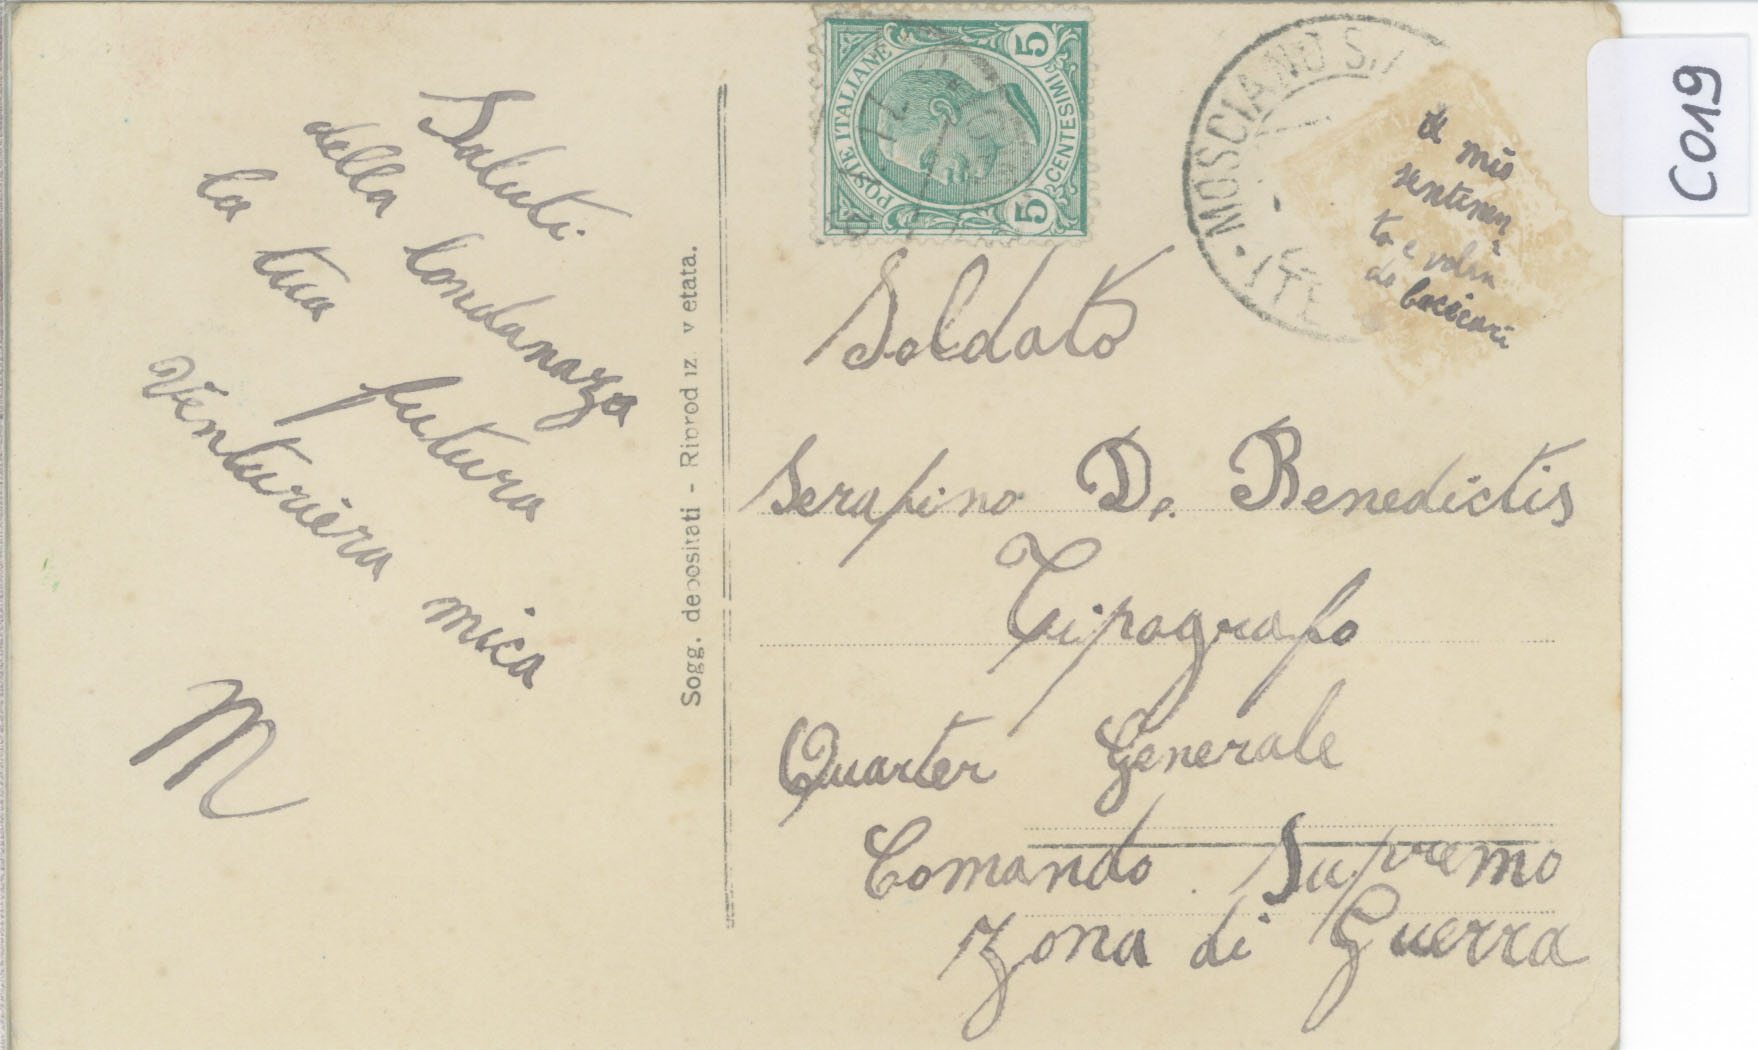 Saluti
della londanazza
la tua futura
Venturiera mica
M
Sogg. depositati - Riprod iz v etata.
POSTE ITALIANE
5 CENTESIMI 5
MOSCIANO S.
mio
sentimen
to e
bacicari
C019
Soldato
Serafino De Benedictis
Tipografo
Quarter Generale
Comando Supremo
Zona di Guerra